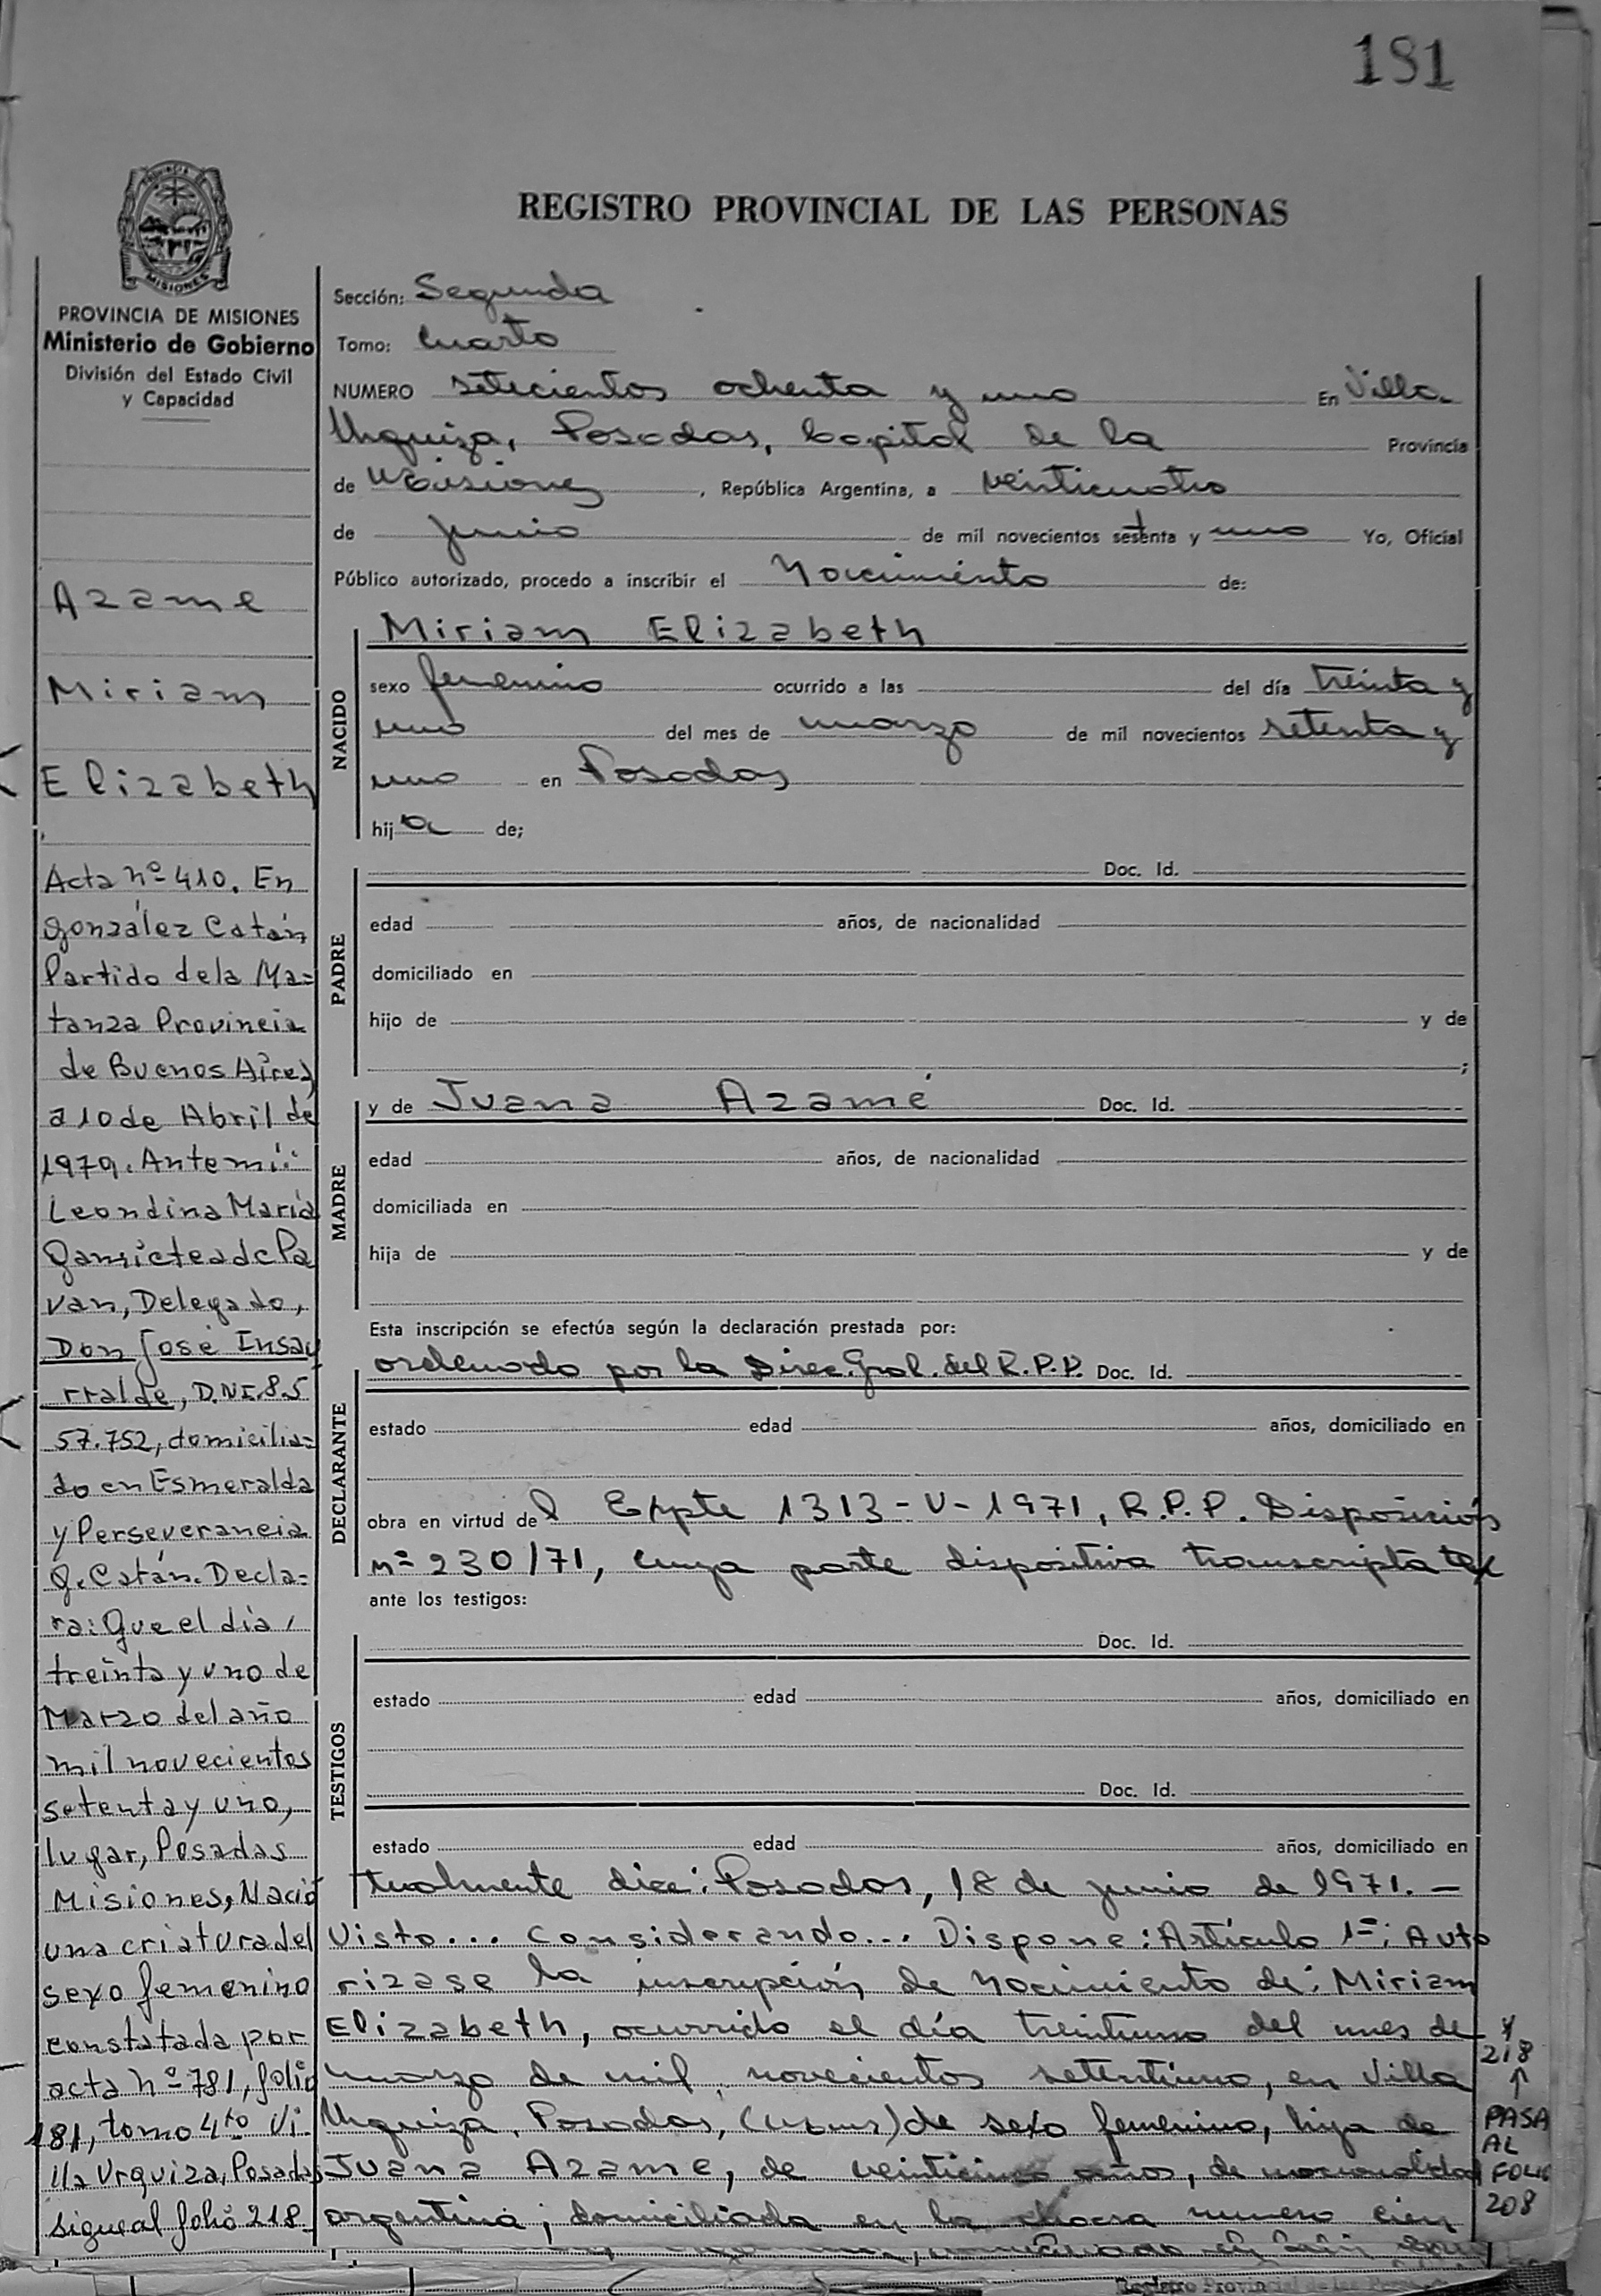 181
REGISTRO PROVINCIAL DE LAS PERSONAS
PROVINCIA DE
MISIONES
PROVINCIA DE MISIONES
Ministerio de Gobierno
División del Estado Civil
y Capacidad
Azame
Miriam
Elizabeth
Acta nº 410. En
González Catán
Partido de la Ma=
tanza Provincia
de Buenos Aires
a 10 de Abril de
1979. Ante mí:
Leondina María
de Pa
van, Delegado,
Don José Insau
rralde, D.N.I. 8.5
57.752, domicilia=
do en Esmeralda
y Perseverancia
G. Catán. Decla=
ra: Que el día
treinta y uno de
Marzo del año
mil novecientos
setenta y uno,
lugar, Posadas
Misiones, Nació
una criatura del
sexo femenino
constatada por
acta nº 781, folio
181, tomo 4to Vi
lla Urquiza, Posadas
sigue al folio 218
Sección: Segunda
Tomo: Cuarto
NUMERO setecientos ochenta y uno En Villa
Urquiza, Posadas, Capital de la Provincia
de Misiones, República Argentina, a veinticuatro
de junio de mil novecientos setenta y uno Yo, Oficial
Público autorizado, procedo a inscribir el Nacimiento de:
NACIDO
Miriam Elizabeth
sexo femenino ocurrido a las del día treinta y
uno del mes de marzo de mil novecientos setenta y
uno en Posadas
hija de;
PADRE
Doc. Id.
edad años, de nacionalidad
domiciliado en
hijo de y de
;
MADRE
y de Juana Azamé Doc. Id.
edad años, de nacionalidad
domiciliada en
hija de y de
Esta inscripción se efectúa según la declaración prestada por:
DECLARANTE
ordenado por la Direc. Gral. del R.P.P. Doc. Id.
estado edad años, domiciliado en
obra en virtud del Expte 1313-V-1971, R.P.P. Disposición
nº 230/71, cuya parte dispositiva transcripta tex
ante los testigos:
TESTIGOS
Doc. Id.
estado edad años, domiciliado en
Doc. Id.
estado edad años, domiciliado en
tualmente dice: Posadas, 18 de junio de 1971.-
Visto... Considerando... Dispone: Artículo 1º: Auto
rizase la inscripción de nacimiento de: Miriam
Elizabeth, ocurrido el día treintiuno del mes de
marzo de mil novecientos setentiuno, en Villa
Urquiza, Posadas, (Mnes) de sexo femenino, hija de
Juana Azame, de veinticinco años, de nacionalidad
argentina; domiciliada en la chacra numero cien
y
218
↑
PASA
AL
FOLIO
208